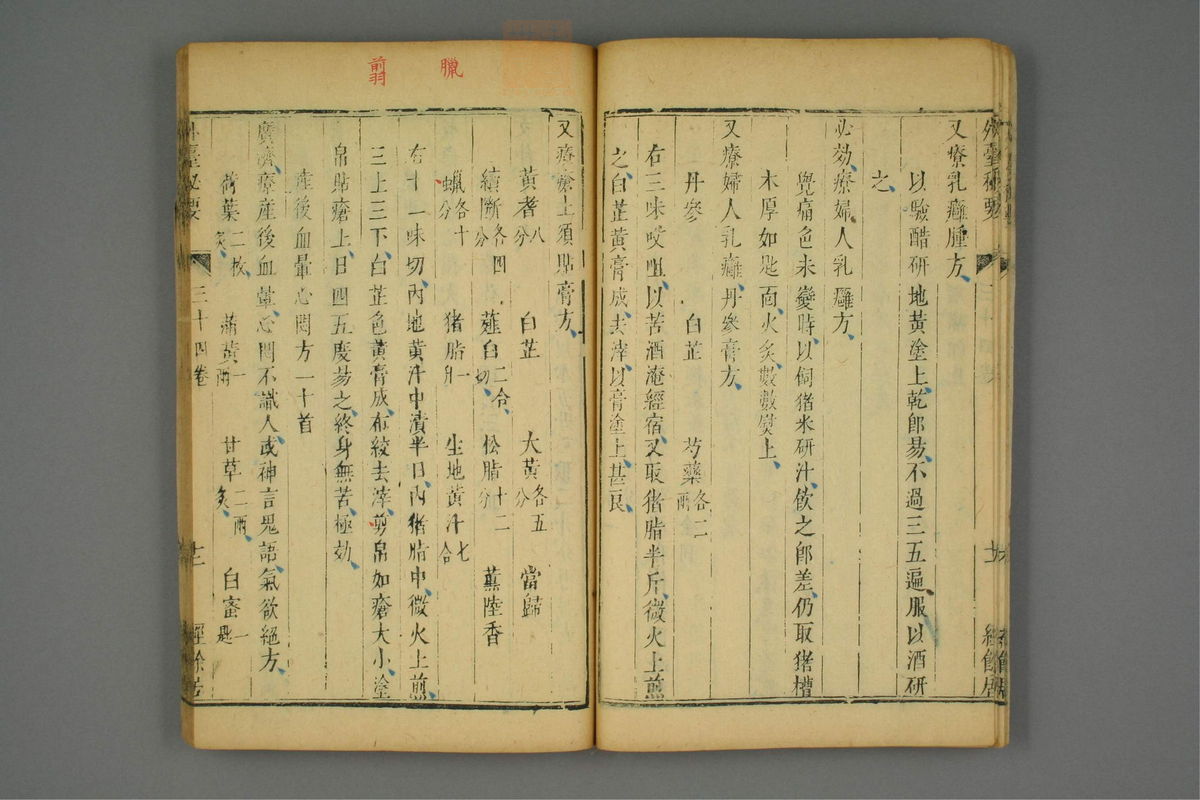 外臺秘要
又療乳癰腫方
以驗醋研地黃塗上乾卽易不過三五遍服以酒研
之
必効療婦人乳癰方
覺痛色未變時以飼猪米研汁飲之卽差仍取猪槽
木厚如匙面火炙數數熨上
又療婦人乳癰丹參膏方
丹參 白芷 芍藥各二兩
右三味㕮咀以苦酒淹經宿又取猪脂半斤微火上煎
之白芷黃膏成去滓以膏塗上甚良
臘
翦
又療瘡上須貼膏方
黃耆八分 白芷 大黃各五分 當歸
續斷各四分 薤白二合切 松脂十二分 薰陸香
蠟各十分 猪脂一升 生地黃汁七合
右十一味切內地黃汁中漬半日內猪脂中微火上煎
三上三下白芷色黃膏成布絞去滓剪帛如瘡大小塗
帛貼瘡上日四五度易之終身無苦極効
產後血暈心悶方一十首
廣濟療產後血暈心悶不識人或神言鬼語氣欲絕方
荷葉二枚炙 蒲黃一兩 甘草二兩炙 白蜜一匙
外臺秘要 三十四卷 十二 經餘居